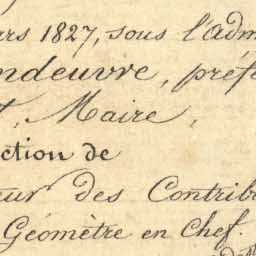 rs 1827, sous l'adm
ndeuvre, préfe
t, Maire,
ction de
eur des Contrib
Géomètre en Chef.